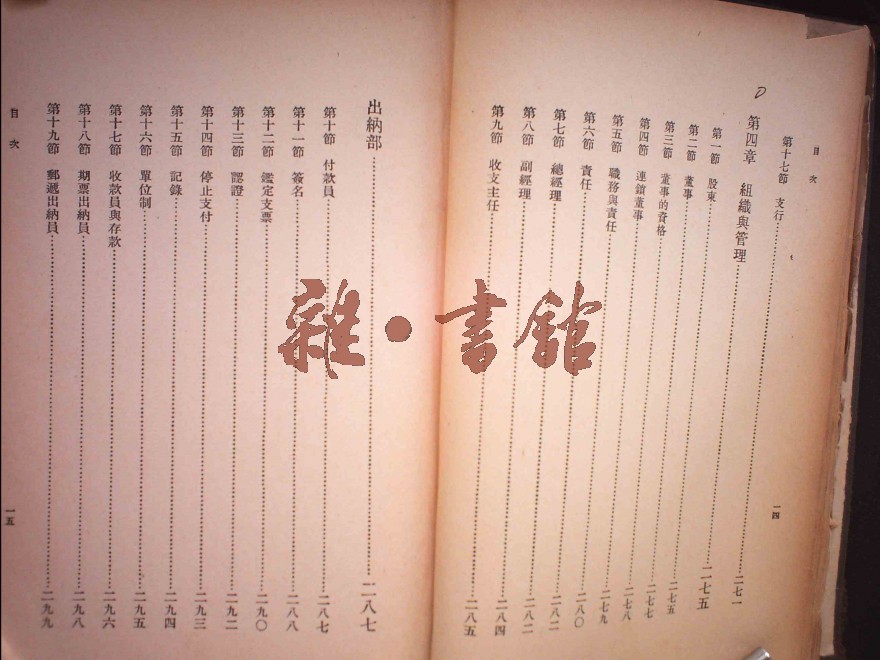 目次
第十七節 支行
第四章 組織與管理 二七一
第一節 股東 二七五
第二節 董事 二七五
第三節 董事的資格 二七七
第四節 連鎖董事 二七八
第五節 職務與責任 二七九
第六節 責任 二八〇
第七節 總經理 二八二
第八節 副經理 二八四
第九節 收支主任 二八五
一四
出納部 二八七
第十節 付款員 二八七
第十一節 簽名 二八八
第十二節 鑑定支票 二九〇
第十三節 認證 二九二
第十四節 停止支付 二九三
第十五節 記錄 二九四
第十六節 單位制 二九五
第十七節 收款員與存款 二九六
第十八節 期票出納員 二九八
第十九節 郵遞出納員 二九九
目次
一五
雜·書館